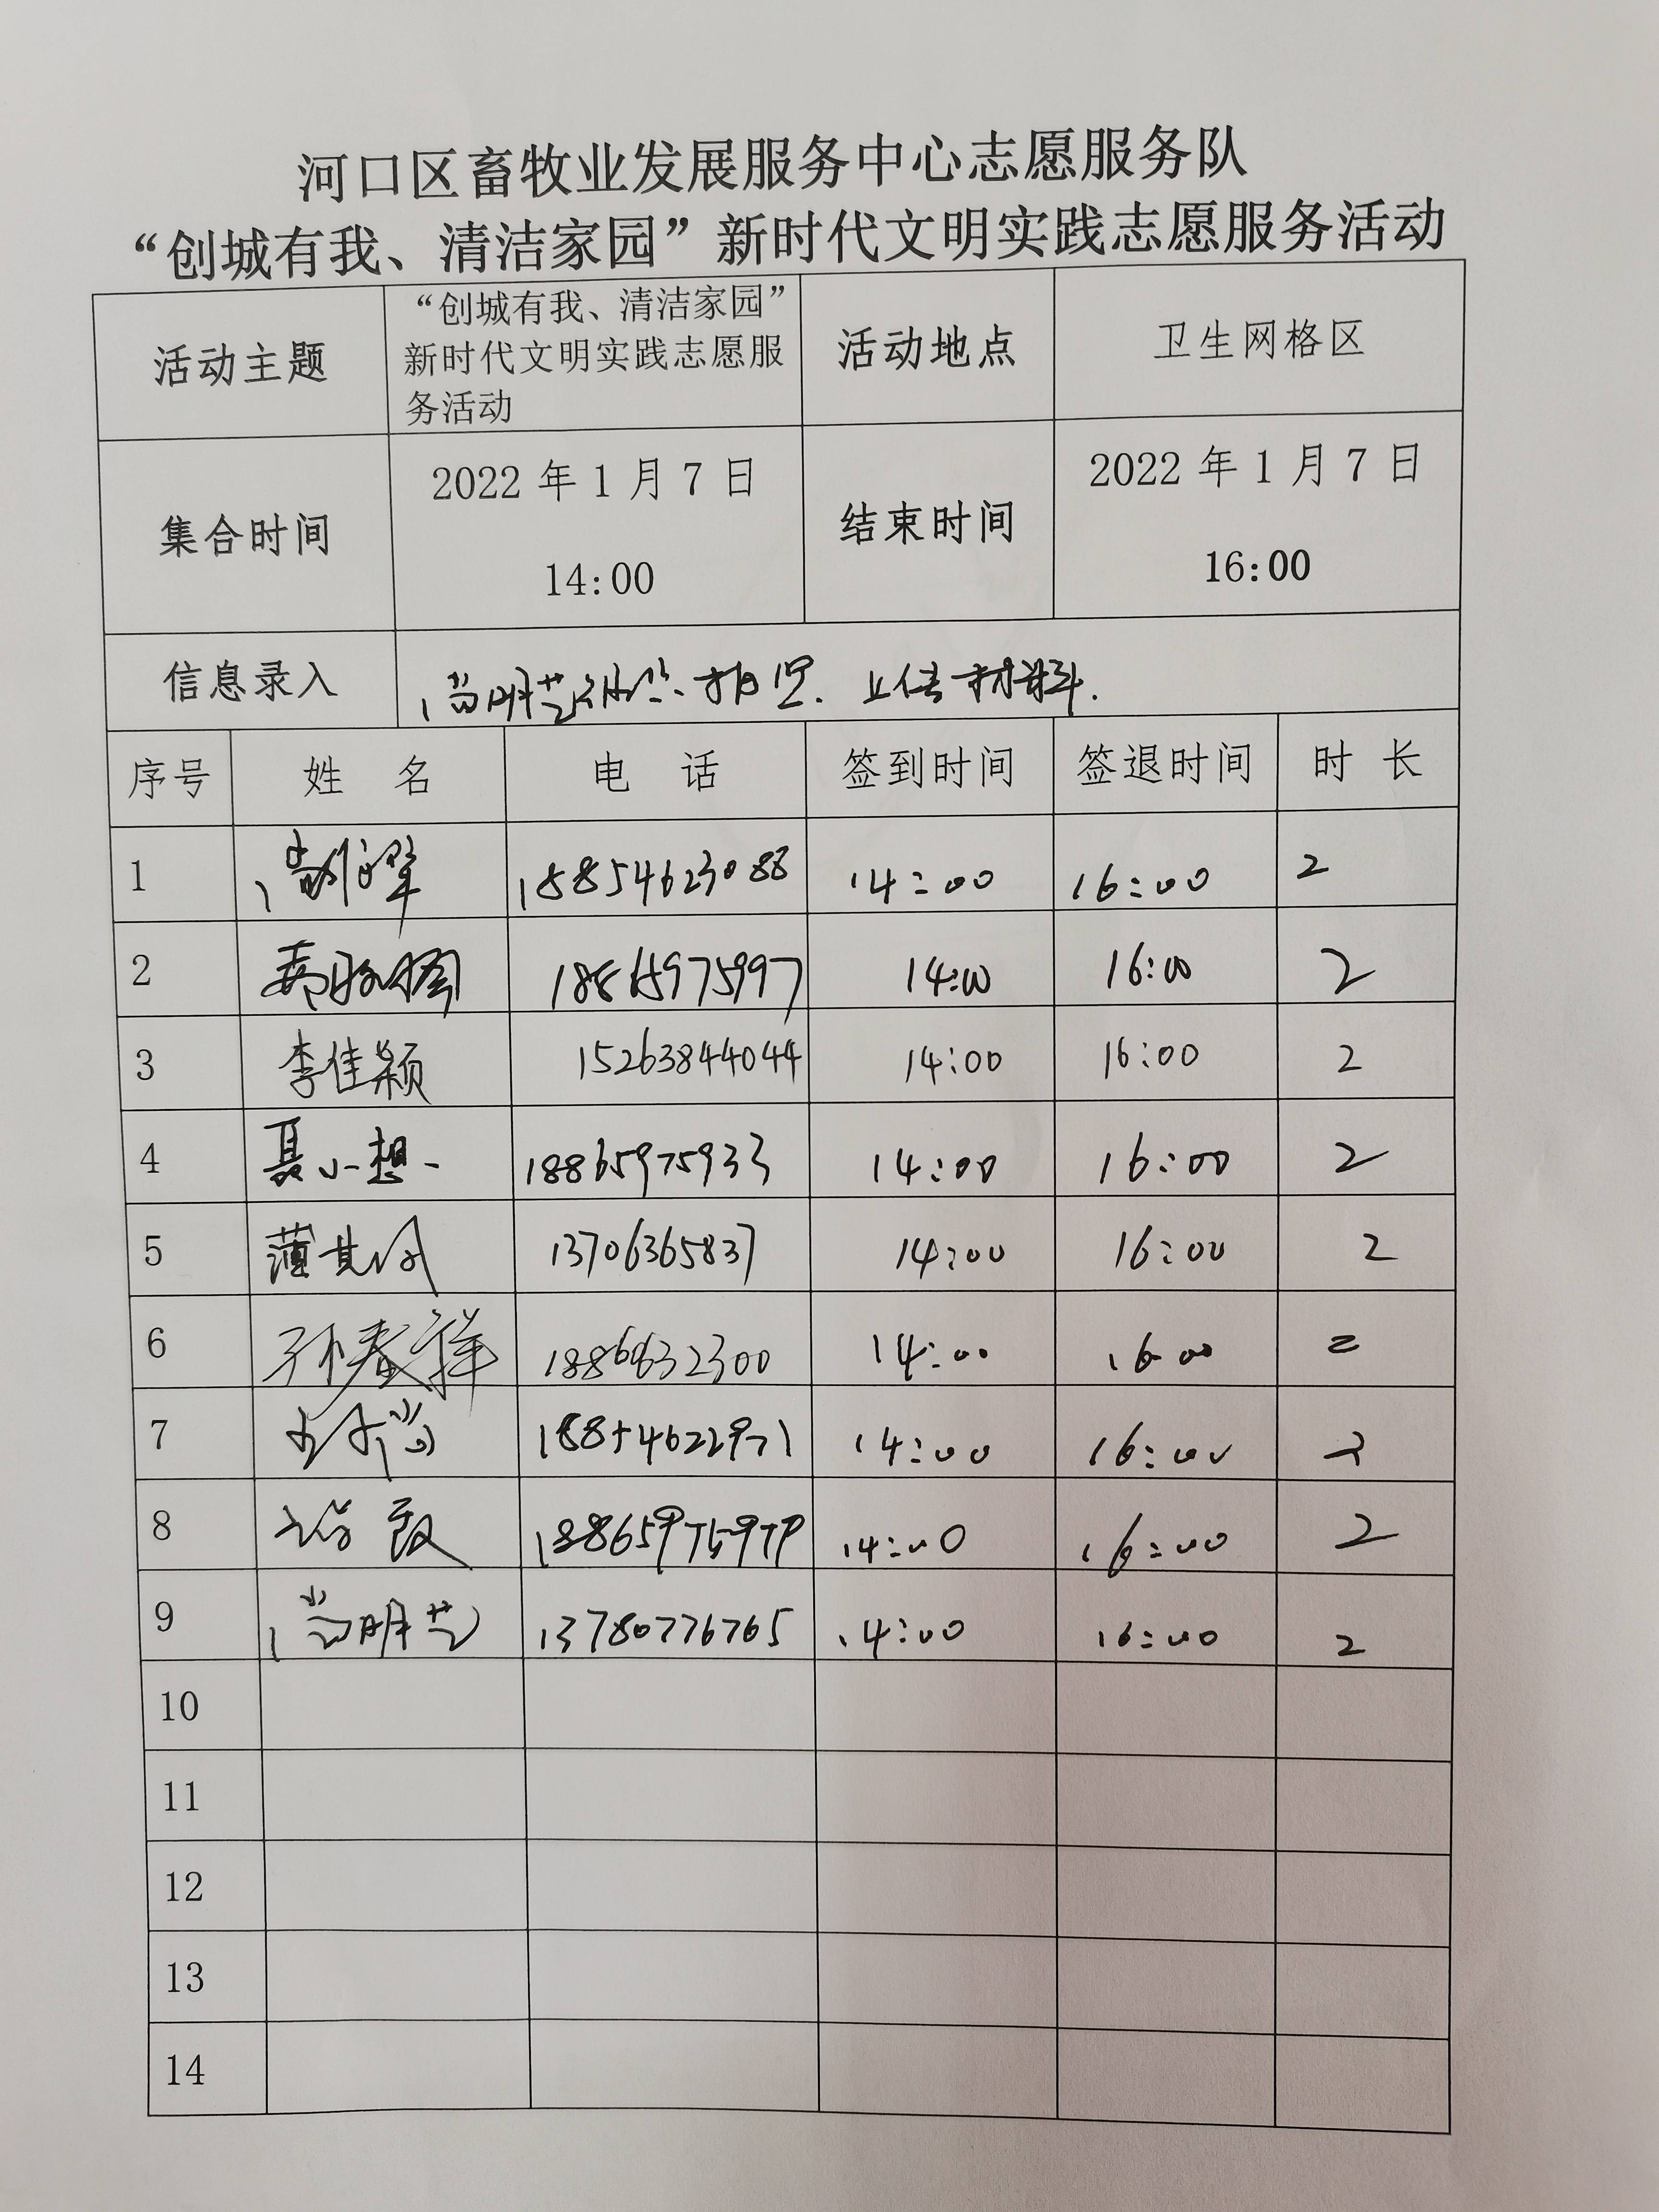 河口区畜牧业发展服务中心志愿服务队
“创城有我、清洁家园”新时代文明实践志愿服务活动
活动主题 “创城有我、清洁家园” 新时代文明实践志愿服 务活动 活动地点 卫生网格区
集合时间 2022 年 1 月 7 日 14:00 结束时间 2022 年 1 月 7 日 16:00
信息录入 上传材料.
序号 姓 名 电 话 签到时间 签退时间 时 长
1 18854623088 14:00 16:00 2
2 14:00 16:00 2
3 李佳颖 15263844044 14:00 16:00 2
4 聂小想 18865975933 14:00 16:00 2
5 13706365837 14:00 16:00 2
6 孙春祥 14:00 16:00 2
7 14:00 16:00 2
8 14:00 16:00 2
9 13780776765 14:00 16:00 2
10
11
12
13
14